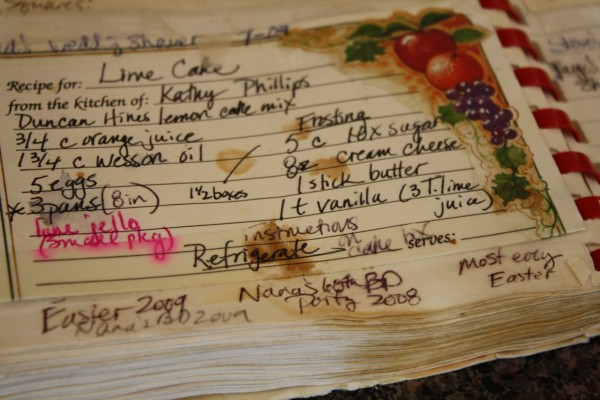 Squares:
Shower 7-09
Recipe for: Lime Cake
from the kitchen of: Kathy Phillips
Duncan Hines lemon cake mix
3/4 c orange juice
1 3/4 c Wesson oil
5 eggs
* 3 pans (8in)
1 1/2 boxes
lime jello
(small pkg)
Frosting
5 c 10x sugar
8oz cream cheese
1 stick butter
1 t vanilla (3 T. lime
juice)
instructions
on
Refrigerate - cake
serves:
Easter 2009
Nana's BD 2009
Nana's BD
Party 2008
Most every
Easter